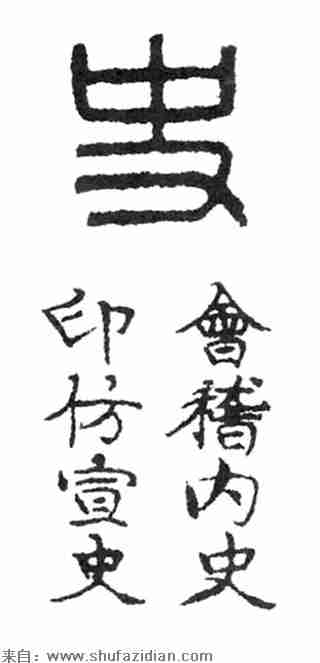 史
會稽内史
印仿宣史
来自：www.shufazidian.com